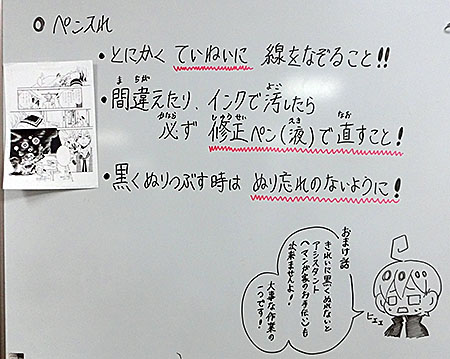 ○ ペン入れ
・とにかく ていねいに 線をなぞること!!
・間違えたり、インクで汚したら
必ず 修正ペン(液)で直すこと!
・黒くぬりつぶす時は ぬり忘れのないように!
おまけ話
きれいに黒くぬれないと
アシスタント
(マンガ家のお手伝い)も
出来ませんよ!
大事な作業の
一つです!
ヒェェ